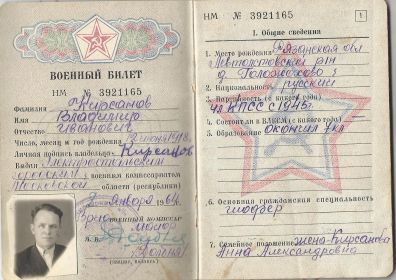 ВОЕННЫЙ БИЛЕТ
НМ № 3921165
Фамилия Кирсанов
Имя Владимир
Отчество Иванович
Число, месяц и год рождения
Личная подпись владельца Кирсанов
Выдан
городским военным комиссариатом
Московской области (республики)
января
Военный комиссар
майор
М. П.
(звание, подпись)
НМ № 3921165
1
I. Общие сведения
1. Место рождения Рязанская обл
2. Национальность русский
3. Партийность (с какого года)
чл КПСС с 1945г.
4. Состоит ли в ВЛКСМ (с какого года)
5. Образование окончил 4 кл
6. Основная гражданская специальность
7. Семейное положение жена-Кирсанова
Анна Александровна